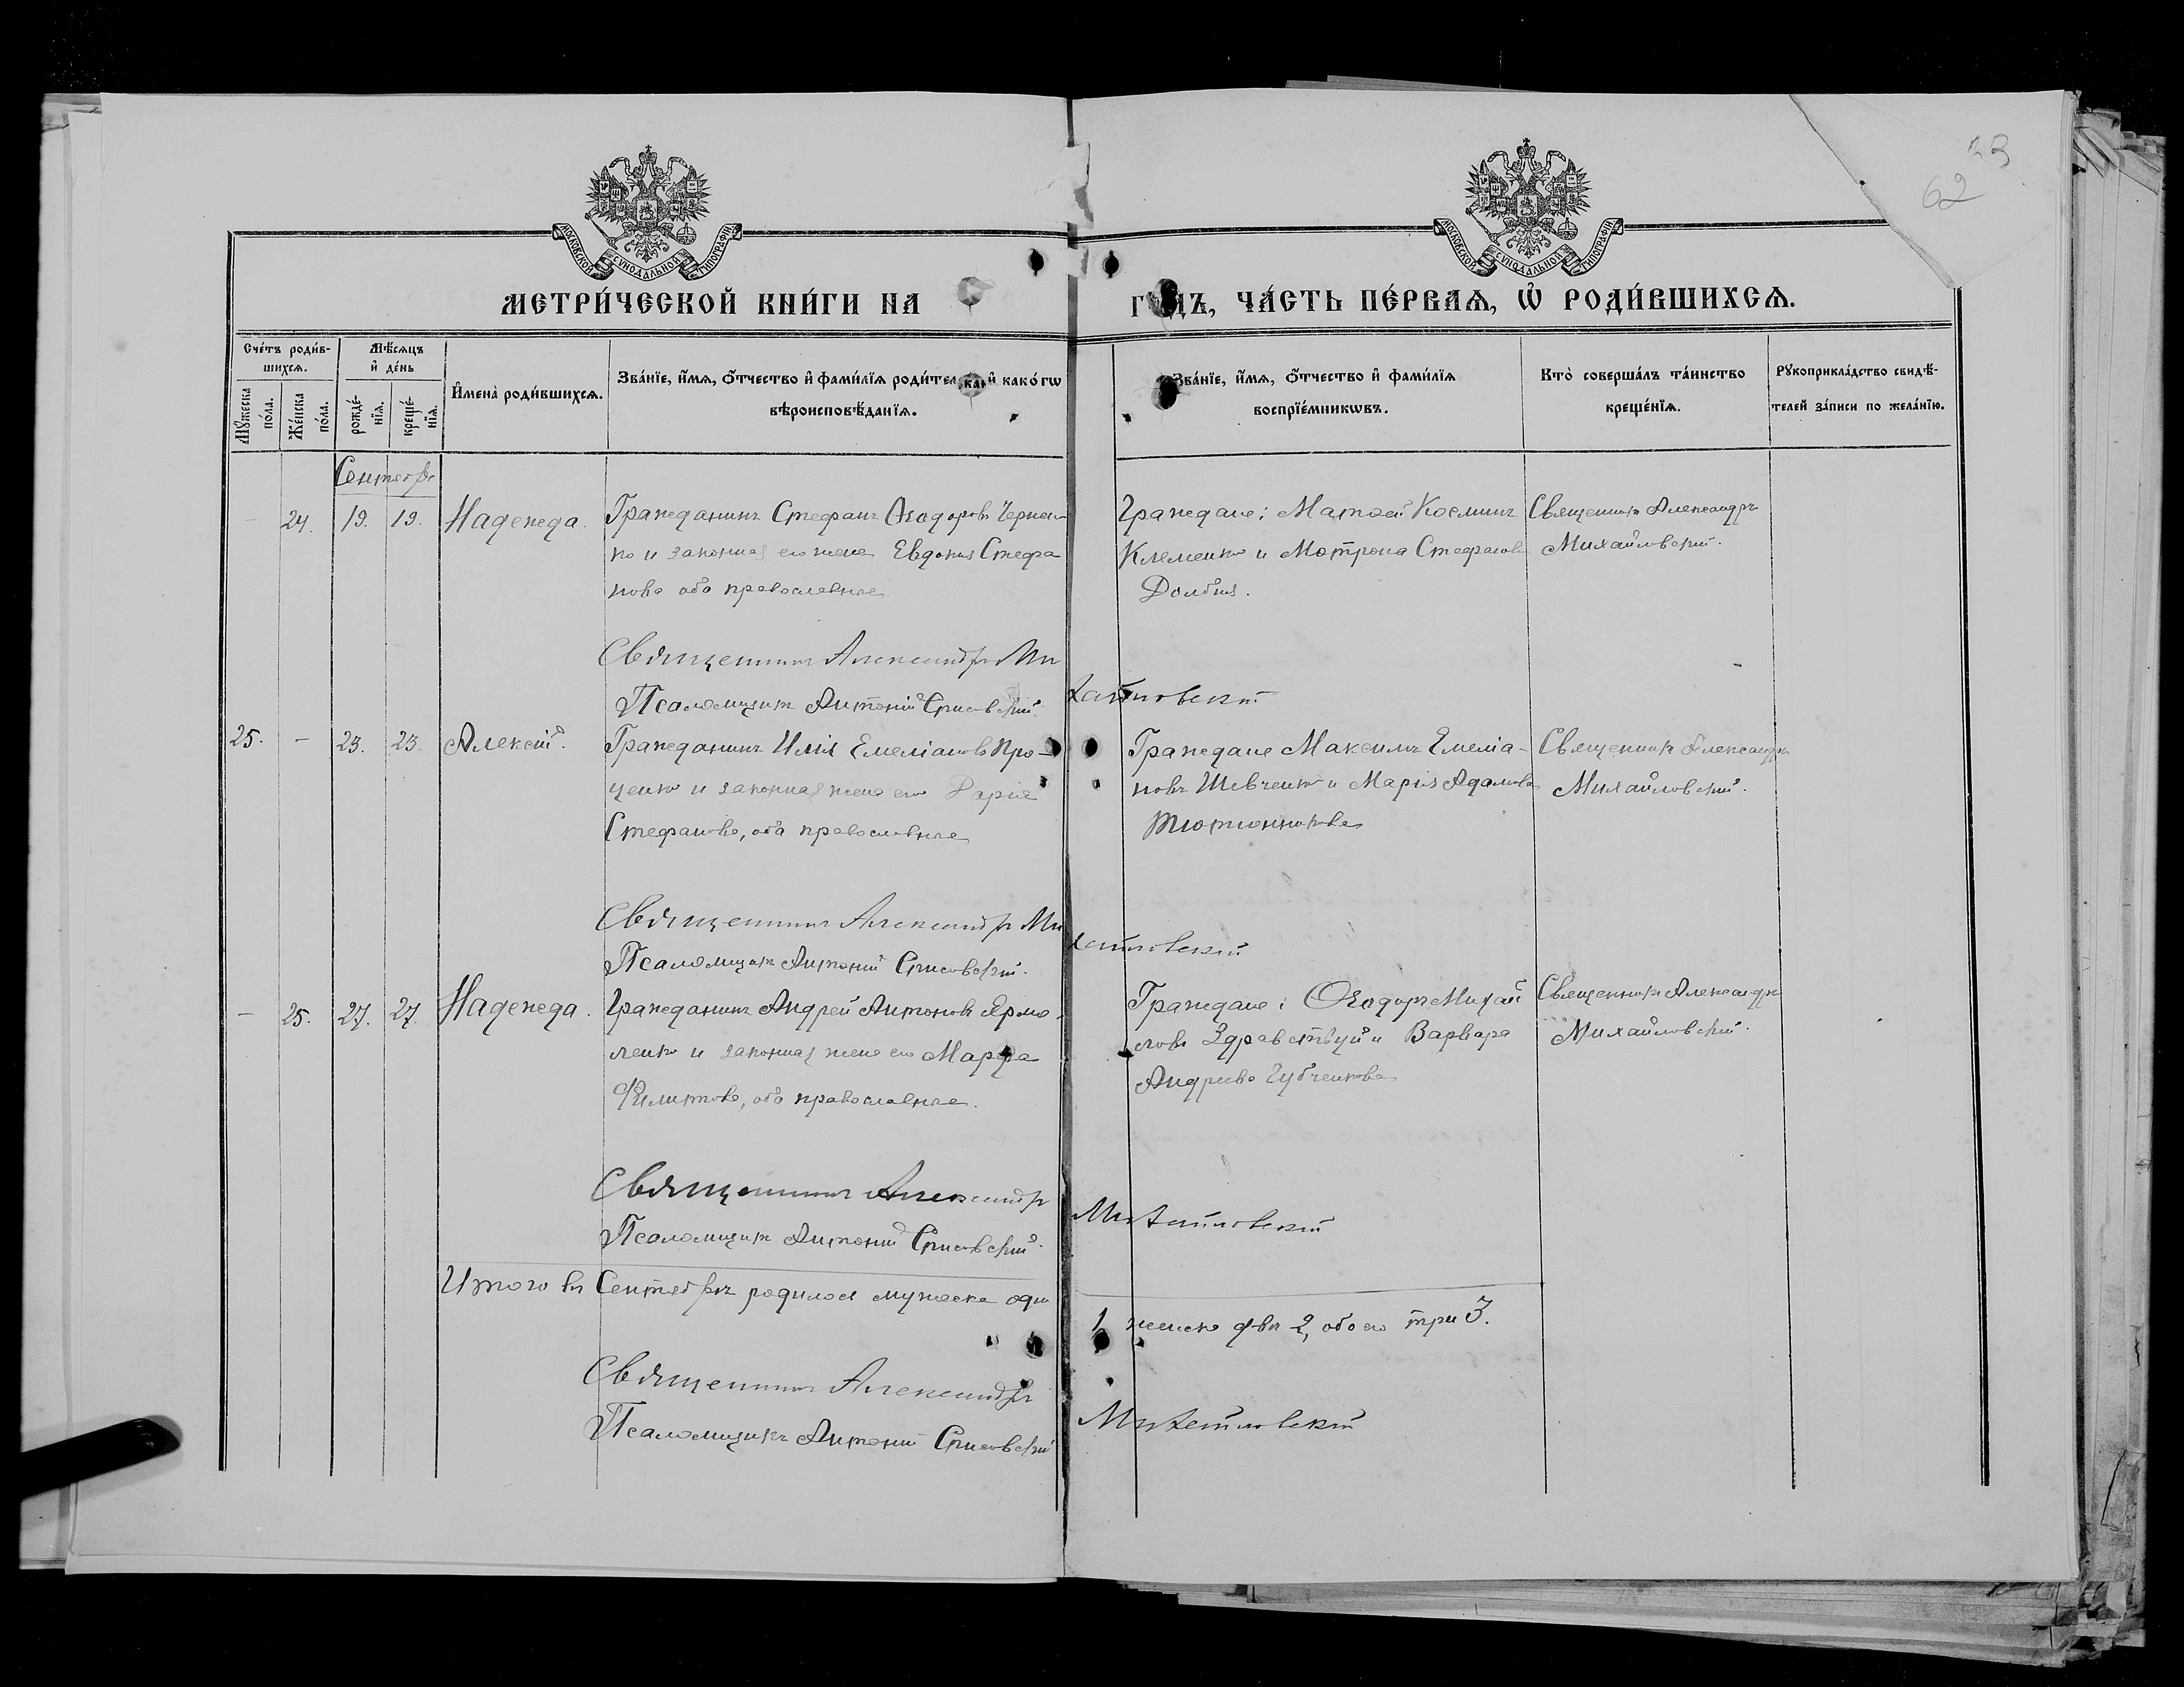 33
62
МОСКОВСКОЙ СУНОДАЛЬНОЙ ТИПОГРАФІИ
МОСКОВСКОЙ СУНОДАЛЬНОЙ ТИПОГРАФІИ
МЕТРИ́ЧЕСКОЙ КНИ́ГИ НА ГОДЪ, ЧА́СТЬ ПЕ́РВАѦ, Ѡ҆ РОДИ́ВШИХСѦ.
Сче́тъ роди́в-
шихсѧ.
Мꙋ́жеска
по́ла.
Же́нска
по́ла.
Мѣ́сѧцъ
и҆ де́нь
рожде́-
нїѧ.
креще́-
нїѧ.
И҆мена̀ роди́вшихсѧ.
Зва́нїе, и҆́мѧ, ѻ҆́тчество и҆ фами́лїѧ роди́тел и҆ како́гѡ
вѣроисповѣ́данїѧ.
Зва́нїе, и҆́мѧ, ѻ҆́тчество и҆ фами́лїѧ
воспрїе́мникѡвъ.
Кто̀ соверша́лъ та́инство
креще́нїѧ.
Рꙋкоприкла́дство свидѣ́-
телей за́писи по жела́нїю.
Сентябр
— 24. 19. 19. Надежда.
Гражданинъ Стефанъ Ѳеодоровъ Чернен
ко и законная его жена Евдокия Стефа
нова оба православные
Граждане: Матѳей Косминъ
Клеменко и Мотрона Стефанова
Долбня.
Священникъ Александръ
Михайловский.
Священникъ Александръ Михайловский
Псаломщикъ Антоний
25. — 23. 23. Алексій.
Гражданинъ Илія Емеліановъ Про-
ценко и законная жена его Дарія
Стефанова, оба православные
Граждане Максимъ Емеліа-
новъ Шевченко и Марія Адамова
Тютюнникова
Священникъ Александръ
Михайловский.
Священникъ Александръ Михайловский
Псаломщикъ Антоний
— 25. 27. 27. Надежда.
Гражданинъ Андрей Антоновъ Ермо-
ленко и законная жена его Марфа
Филиппова, оба православные.
Граждане: Ѳеодоръ Михай
ловъ Здравствуй и Варвара
Андреева Губченкова
Священникъ Александръ
Михайловский.
Священникъ Александръ Михайловский
Псаломщикъ Антоний
Итого въ Сентябрѣ родилося мужеска один
1, женска два 2, обоего три 3.
Священникъ Александръ Михайловский
Псаломщикъ Антоний